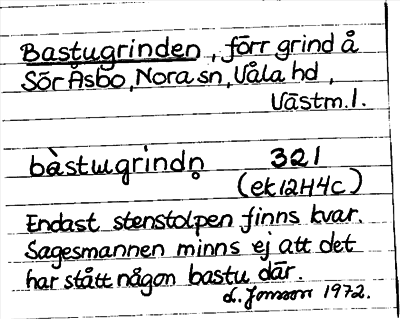 Bastugrinden, förr grind å
Sör Åsbo, Nora sn, Våla hd,
Västm.l.
bàstugrindn̥ 321
(ek12H4c)
Endast stenstolpen finns kvar.
Sagesmannen minns ej att det
har stått någon bastu där.
L. Jonsson 1972.